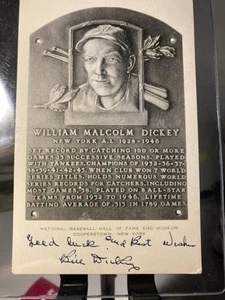 WILLIAM MALCOLM DICKEY
NEW YORK A.L. 1928-1946
SET RECORD BY CATCHING 100 OR MORE
GAMES 13 SUCCESSIVE SEASONS. PLAYED
WITH YANKEES CHAMPIONS OF 1932-36-37-
38-39-41-42-43. WHEN CLUB WON 7 WORLD
SERIES TITLES. HOLDS NUMEROUS WORLD
SERIES RECORDS FOR CATCHERS, INCLUDING
MOST GAMES, 38. PLAYED ON 8 ALL-STAR
TEAMS FROM 1932 TO 1946. LIFETIME
BATTING AVERAGE OF .313 IN 1789 GAMES.
NATIONAL BASEBALL HALL OF FAME AND MUSEUM
COOPERSTOWN, NEW YORK
Good luck and Best Wishes
Bill Dickey